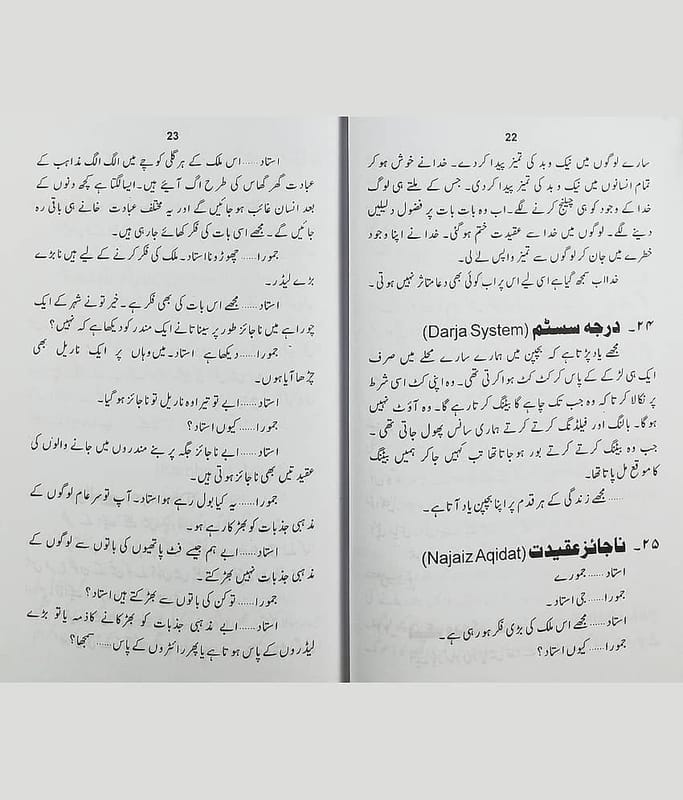 22
سارے لوگوں میں نیک و بد کی تمیز پیدا کر دے۔ خدا نے خوش ہو کر
تمام انسانوں میں نیک و بد کی تمیز پیدا کر دی۔ جس کے ملتے ہی لوگ
خدا کے وجود کو ہی چیلنج کرنے لگے۔ اب وہ بات بات پر فضول دلیلیں
دینے لگے۔ لوگوں میں خدا سے عقیدت ختم ہو گئی۔ خدا نے اپنا وجود
خطرے میں جان کر لوگوں سے تمیز واپس لے لی۔
خدا اب سمجھ گیا ہے اسی لیے اس پر اب کوئی بھی دعا متاثر نہیں ہوتی۔
۲۴۔ درجہ سسٹم (Darja System)
مجھے یاد پڑتا ہے کہ بچپن میں ہمارے سارے محلے میں صرف
ایک ہی لڑکے کے پاس کرکٹ کٹ ہوا کرتی تھی۔ وہ اپنی کٹ اسی شرط
پر نکالا کرتا کہ وہ جب تک چاہے گا بیٹنگ کرتا رہے گا۔ وہ آؤٹ نہیں
ہوگا۔ بالنگ اور فیلڈنگ کرتے کرتے ہماری سانس پھول جاتی تھی۔
جب وہ بیٹنگ کرتے کرتے بور ہو جاتا تھا تب کہیں جا کر ہمیں بیٹنگ
کا موقع مل پاتا تھا۔
...... مجھے زندگی کے ہر قدم پر اپنا بچپن یاد آتا ہے۔
۲۵۔ ناجائز عقیدت (Najaiz Aqidat)
استاد...... جمورے
جمورا...... جی استاد۔
استاد...... مجھے اس ملک کی بڑی فکر ہو رہی ہے۔
جمورا...... کیوں استاد؟
23
استاد...... اس ملک کے ہر گلی کوچے میں الگ الگ مذاہب کے
عبادت گھر گھاس کی طرح اگ آئے ہیں۔ ایسا لگتا ہے کچھ دنوں کے
بعد انسان غائب ہو جائیں گے اور یہ مختلف عبادت خانے ہی باقی رہ
جائیں گے۔ مجھے اسی بات کی فکر کھائے جا رہی ہیں۔
جمورا...... چھوڑو نا استاد۔ ملک کی فکر کرنے کے لیے ہیں نا بڑے
بڑے لیڈر۔
استاد...... مجھے اس بات کی بھی فکر ہے۔ خیر تو نے شہر کے ایک
چوراہے میں ناجائز طور پر سینا تانے ایک مندر کو دیکھا ہے کہ نہیں؟
جمورا...... دیکھا ہے استاد۔ میں وہاں پر ایک ناریل بھی
چڑھا آیا ہوں۔
استاد...... ابے تو تیرا وہ ناریل تو ناجائز ہو گیا۔
جمورا...... کیوں استاد؟
استاد...... ابے ناجائز جگہ پر بنے مندروں میں جانے والوں کی
عقیدتیں بھی ناجائز ہوتی ہیں۔
جمورا...... یہ کیا بول رہے ہو استاد۔ آپ تو سرعام لوگوں کے
مذہبی جذبات کو بھڑکا رہے ہو۔
استاد...... ابے ہم جیسے فٹ پاتھیوں کی باتوں سے لوگوں کے
مذہبی جذبات نہیں بھڑکتے۔
جمورا...... تو کن کی باتوں سے بھڑکتے ہیں استاد؟
استاد...... ابے مذہبی جذبات کو بھڑکانے کا ذمہ یا تو بڑے
لیڈروں کے پاس ہوتا ہے یا پھر رائٹروں کے پاس...... سمجھا؟